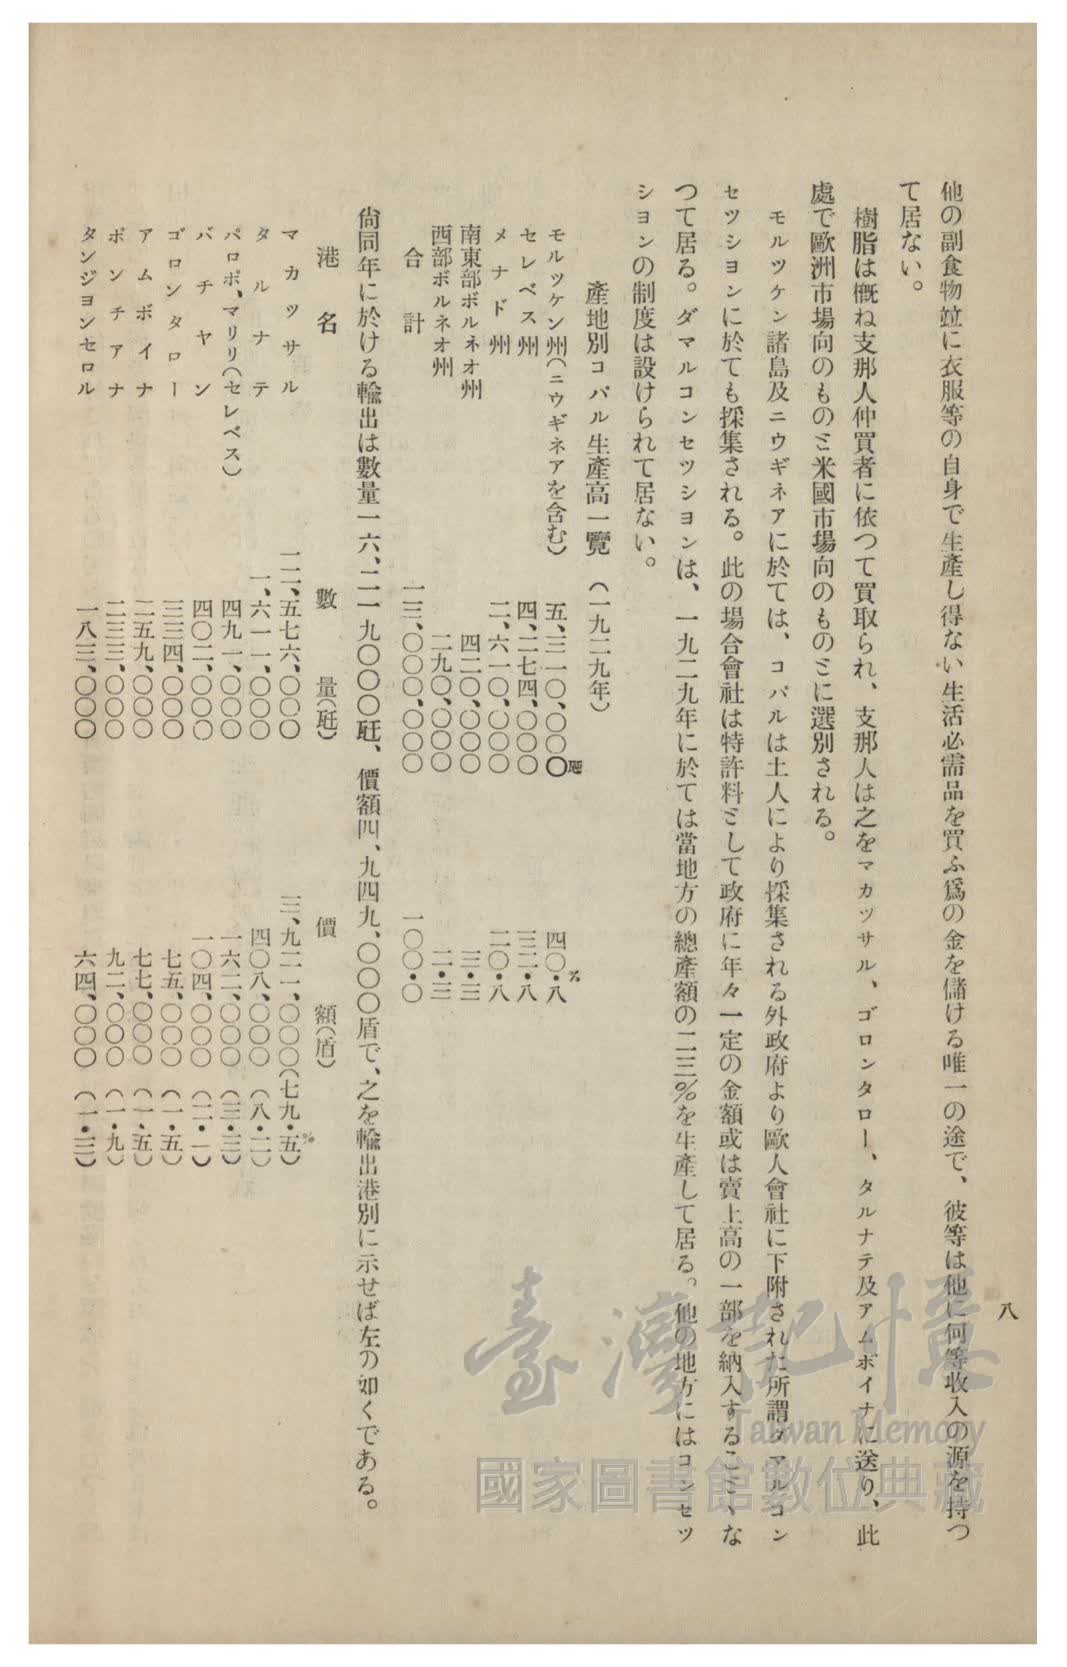 八
他の副食物竝に衣服等の自身で生產し得ない生活必需品を買ふ爲の金を儲ける唯一の途で、彼等は他に何等收入の源を持つ
て居ない。
樹脂は槪ね支那人仲買者に依つて買取られ、支那人は之をマカッサル、ゴロンタロー、タルナテ及アムボイナに送り、此
處で歐洲市場向のものと米國市場向のものとに選別される。
モルツケン諸島及ニウギネアに於ては、コパルは土人により採集される外政府より歐人會社に下附された所謂ダマルコン
セツシヨンに於ても採集される。此の場合會社は特許料として政府に年々一定の金額或は賣上高の一部を納入することゝな
つて居る。ダマルコンセツシヨンは、一九二九年に於ては當地方の總產額の二三％を生產して居る。他の地方にはコンセツ
シヨンの制度は設けられて居ない。
產地別コパル生產高一覽　（一九二九年）
モルツケン州（ニウギネアを含む）　五、三一〇、〇〇〇瓩　四〇・八％
セレベス州　四、二七四、〇〇〇　三二・八
メナド州　二、六一〇、〇〇〇　二〇・八
南東部ボルネオ州　四二〇、〇〇〇　三・三
西部ボルネオ州　二九〇、〇〇〇　二・三
合計　一三、〇〇〇、〇〇〇　一〇〇・〇
尙同年に於ける輸出は數量一六、二一九〇〇〇瓩、價額四、九四九、〇〇〇盾で、之を輸出港別に示せば左の如くである。
港名　數量（瓩）　價額（盾）
マカッサル　一二、五七六、〇〇〇　三、九二一、〇〇〇（七九・五％）
タルナテ　一、六一一、〇〇〇　四〇八、〇〇〇（八・二）
パロポ、マリリ（セレベス）　四九一、〇〇〇　一六二、〇〇〇（三・三）
バチヤン　四〇二、〇〇〇　一〇四、〇〇〇（二・一）
ゴロンタロー　三三四、〇〇〇　七五、〇〇〇（一・五）
アムボイナ　二五九、〇〇〇　七七、〇〇〇（一・五）
ポンチアナ　二三三、〇〇〇　九二、〇〇〇（一・九）
タンジヨンセロル　一八三、〇〇〇　六四、〇〇〇（一・三）
臺灣記憶
Taiwan Memory
國家圖書館數位典藏